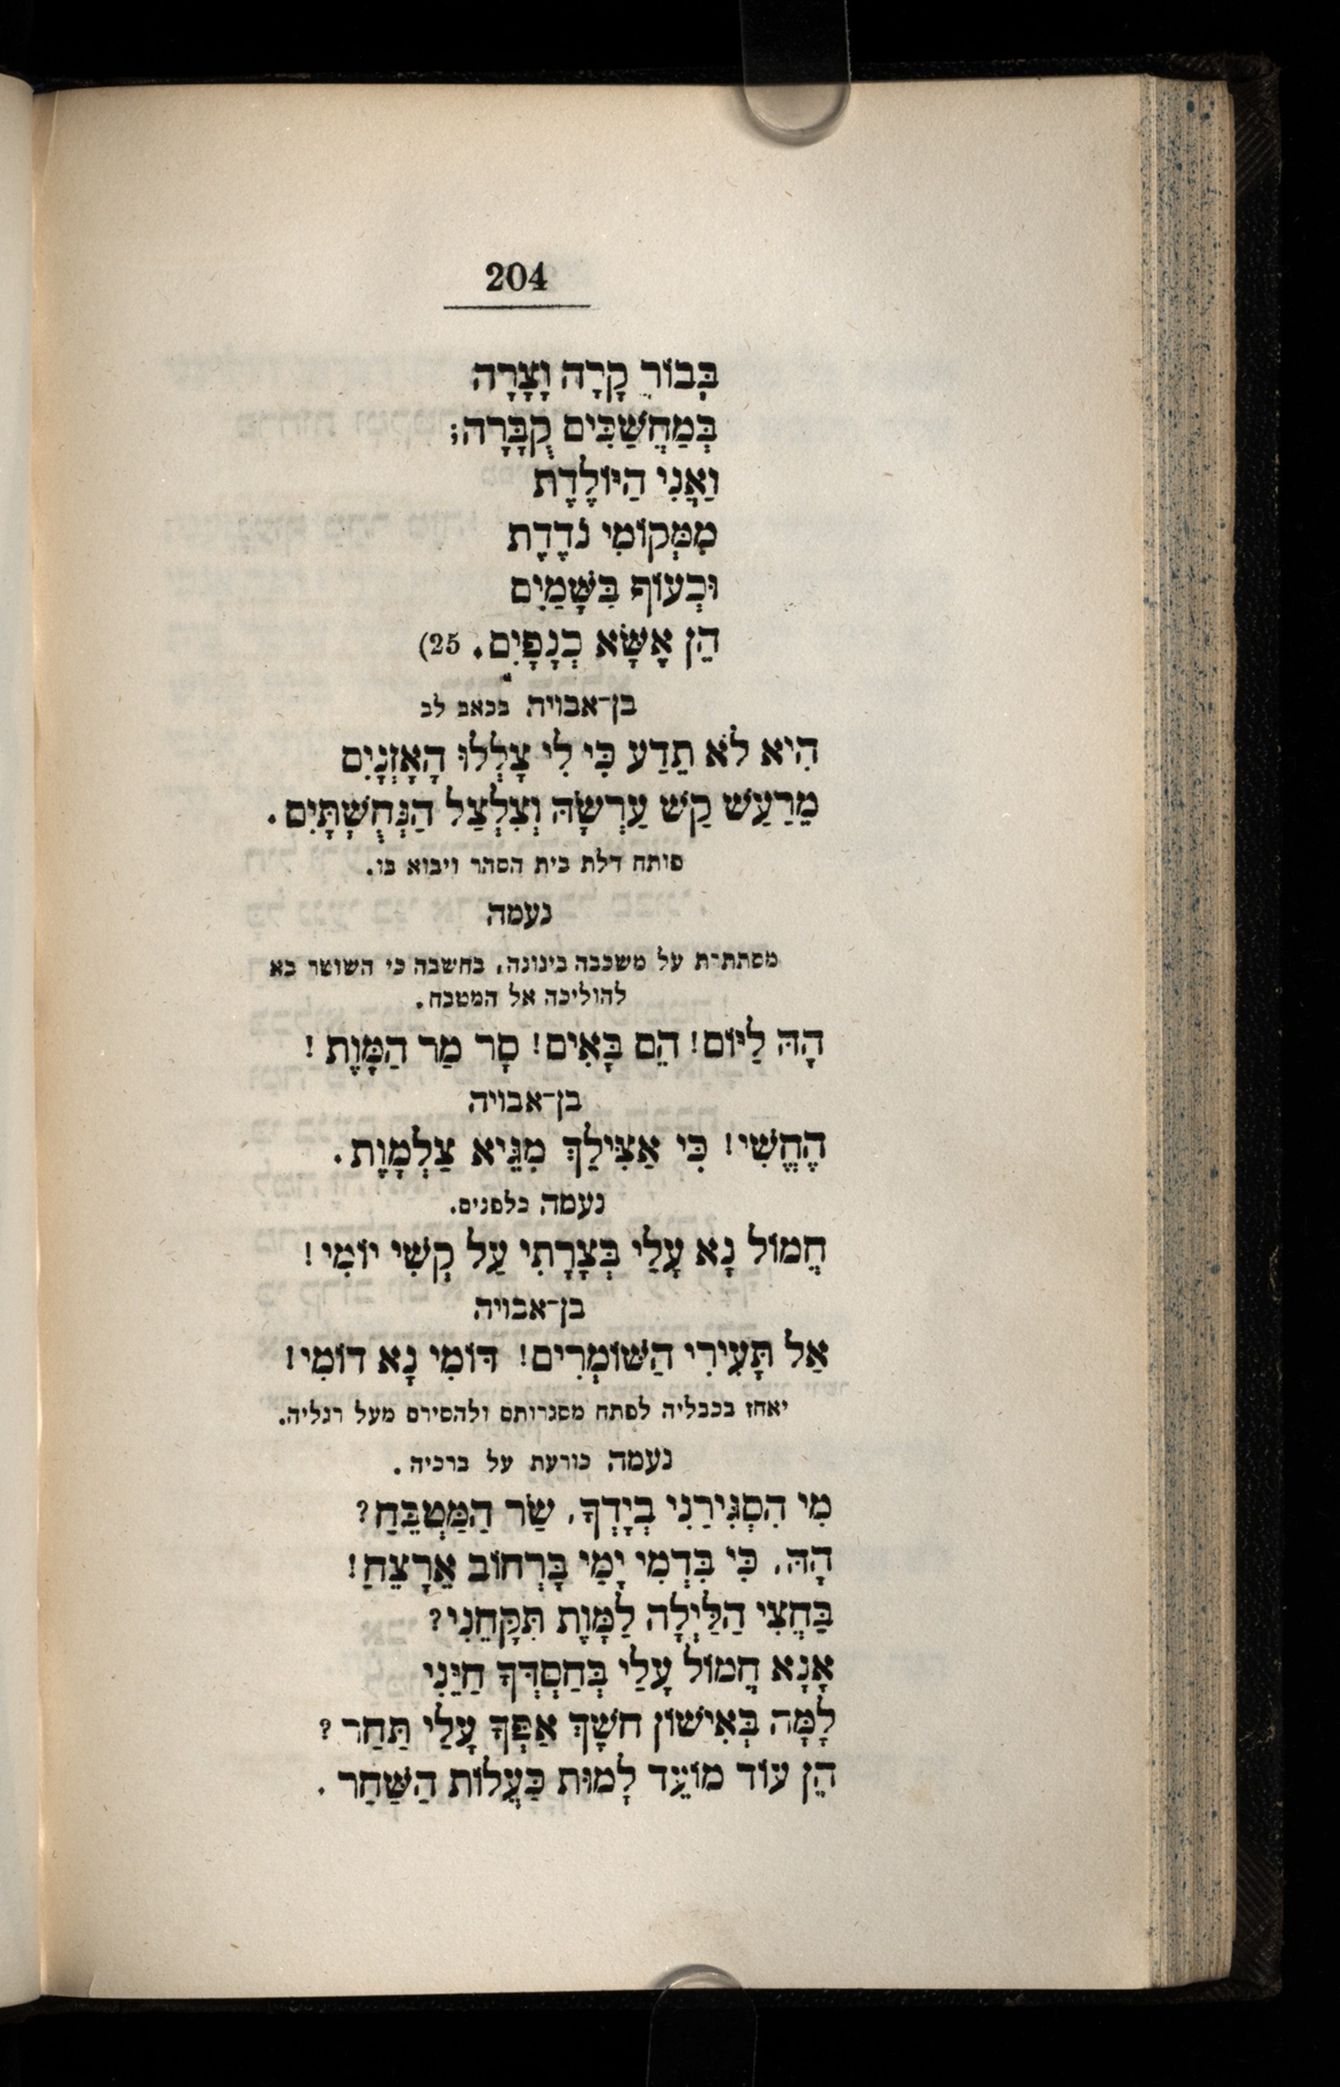 204
בְּבוֹר קָרָה וָצָרָה
בְּמַחֲשַׁכִּים קֻבָּרָה;
וַאֲנִי הַיּוֹלֶדֶת
מִמְּקוֹמִי נֹדֶדֶת
וּכְעוֹף בַּשָּׁמַיִם
הֵן אֶשָּׂא כְנָפָיִם. (25
בן־אבויה בכאב לב
הִיא לֹא תֵדַע כִּי לִי צָלְלוּ הָאָזְנָיִם
מֵרַעַשׁ קַשׁ עַרְשָׂהּ וְצִלְצַל הַנְּחֻשְׁתָּיִם.
פותח דלת בית הסהר ויבוא בו.
נעמה
מסתתרת על משכבה בינונה, בחשבה כי השוטר בא
להוליכה אל המטבח.
הָהּ לַיּוֹם! הֵם בָּאִים! סָר מַר הַמָּוֶת!
בן־אבויה
הֶחֱשִׁי! כִּי אַצִּילֵךְ מִגֵּיא צַלְמָוֶת.
נעמה כלפנים.
חֲמוֹל נָא עָלַי בְּצָרָתִי עַל קְשִׁי יוֹמִי!
בן־אבויה
אַל תָּעִירִי הַשּׁוֹמְרִים! דּוֹמִי נָא דוֹמִי!
יאחז בכבליה לפתח מסגרותם ולהסירם מעל רגליה.
נעמה כורעת על ברכיה.
מִי הִסְגִּירַנִי בְיָדְךָ, שַׂר הַמַּטְבֵּחַ?
הָהּ, כִּי בִּדְמִי יָמַי בָּרְחוֹב אֵרָצֵחַ!
בַּחֲצִי הַלַּיְלָה לַמָּוֶת תִּקָּחֵנִי?
אָנָא חֲמוֹל עָלַי בְּחַסְדְּךָ חַיֵּנִי
לָמָּה בְּאִישׁוֹן חשֶׁךְ אַפְּךָ עָלַי תַּחַר?
הֵן עוֹד מוֹעֵד לָמוּת כַּעֲלוֹת הַשַּׁחַר.